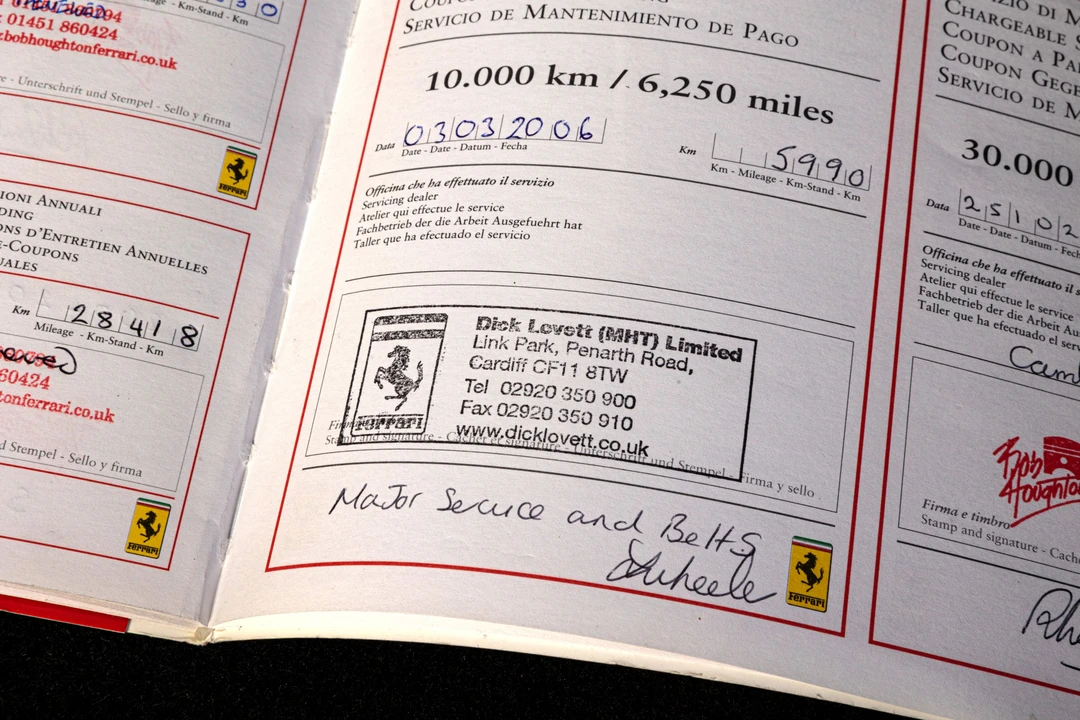 01451 860424
bobhoughtonferrari.co.uk
- Unterschrift und Stempel - Sello y firma
Ferrari
IONI ANNUALI
DING
ONS D'ENTRETIEN ANNUELLES
E-COUPONS
UALES
Km 28418
Mileage - Km-Stand - Km
60424
tonferrari.co.uk
d Stempel - Sello y firma
Ferrari
SERVICIO DE MANTENIMIENTO DE PAGO
10.000 km / 6,250 miles
Data 03032006
Date - Date - Datum - Fecha
Km 5990
Km - Mileage - Km-Stand - Km
Officina che ha effettuato il servizio
Servicing dealer
Atelier qui effectue le service
Fachbetrieb der die Arbeit Ausgefuehrt hat
Taller que ha efectuado el servicio
Ferrari
Dick Lovett (MHT) Limited
Link Park, Penarth Road,
Cardiff CF11 8TW
Tel 02920 350 900
Fax 02920 350 910
www.dicklovett.co.uk
Stamp and signature - Cachet et signature - Unterschrift und Stempel - Firma y sello
Major Service and Belts
Ferrari
CHARGEABLE S
COUPON A PA
COUPON GEGE
SERVICIO DE M
30.000
Data 25102
Date - Date - Datum - Fech
Officina che ha effettuato il s
Servicing dealer
Atelier qui effectue le service
Fachbetrieb der die Arbeit Au
Taller que ha efectuado el ser
Bob
Houghton
Firma e timbro
Stamp and signature - Cache